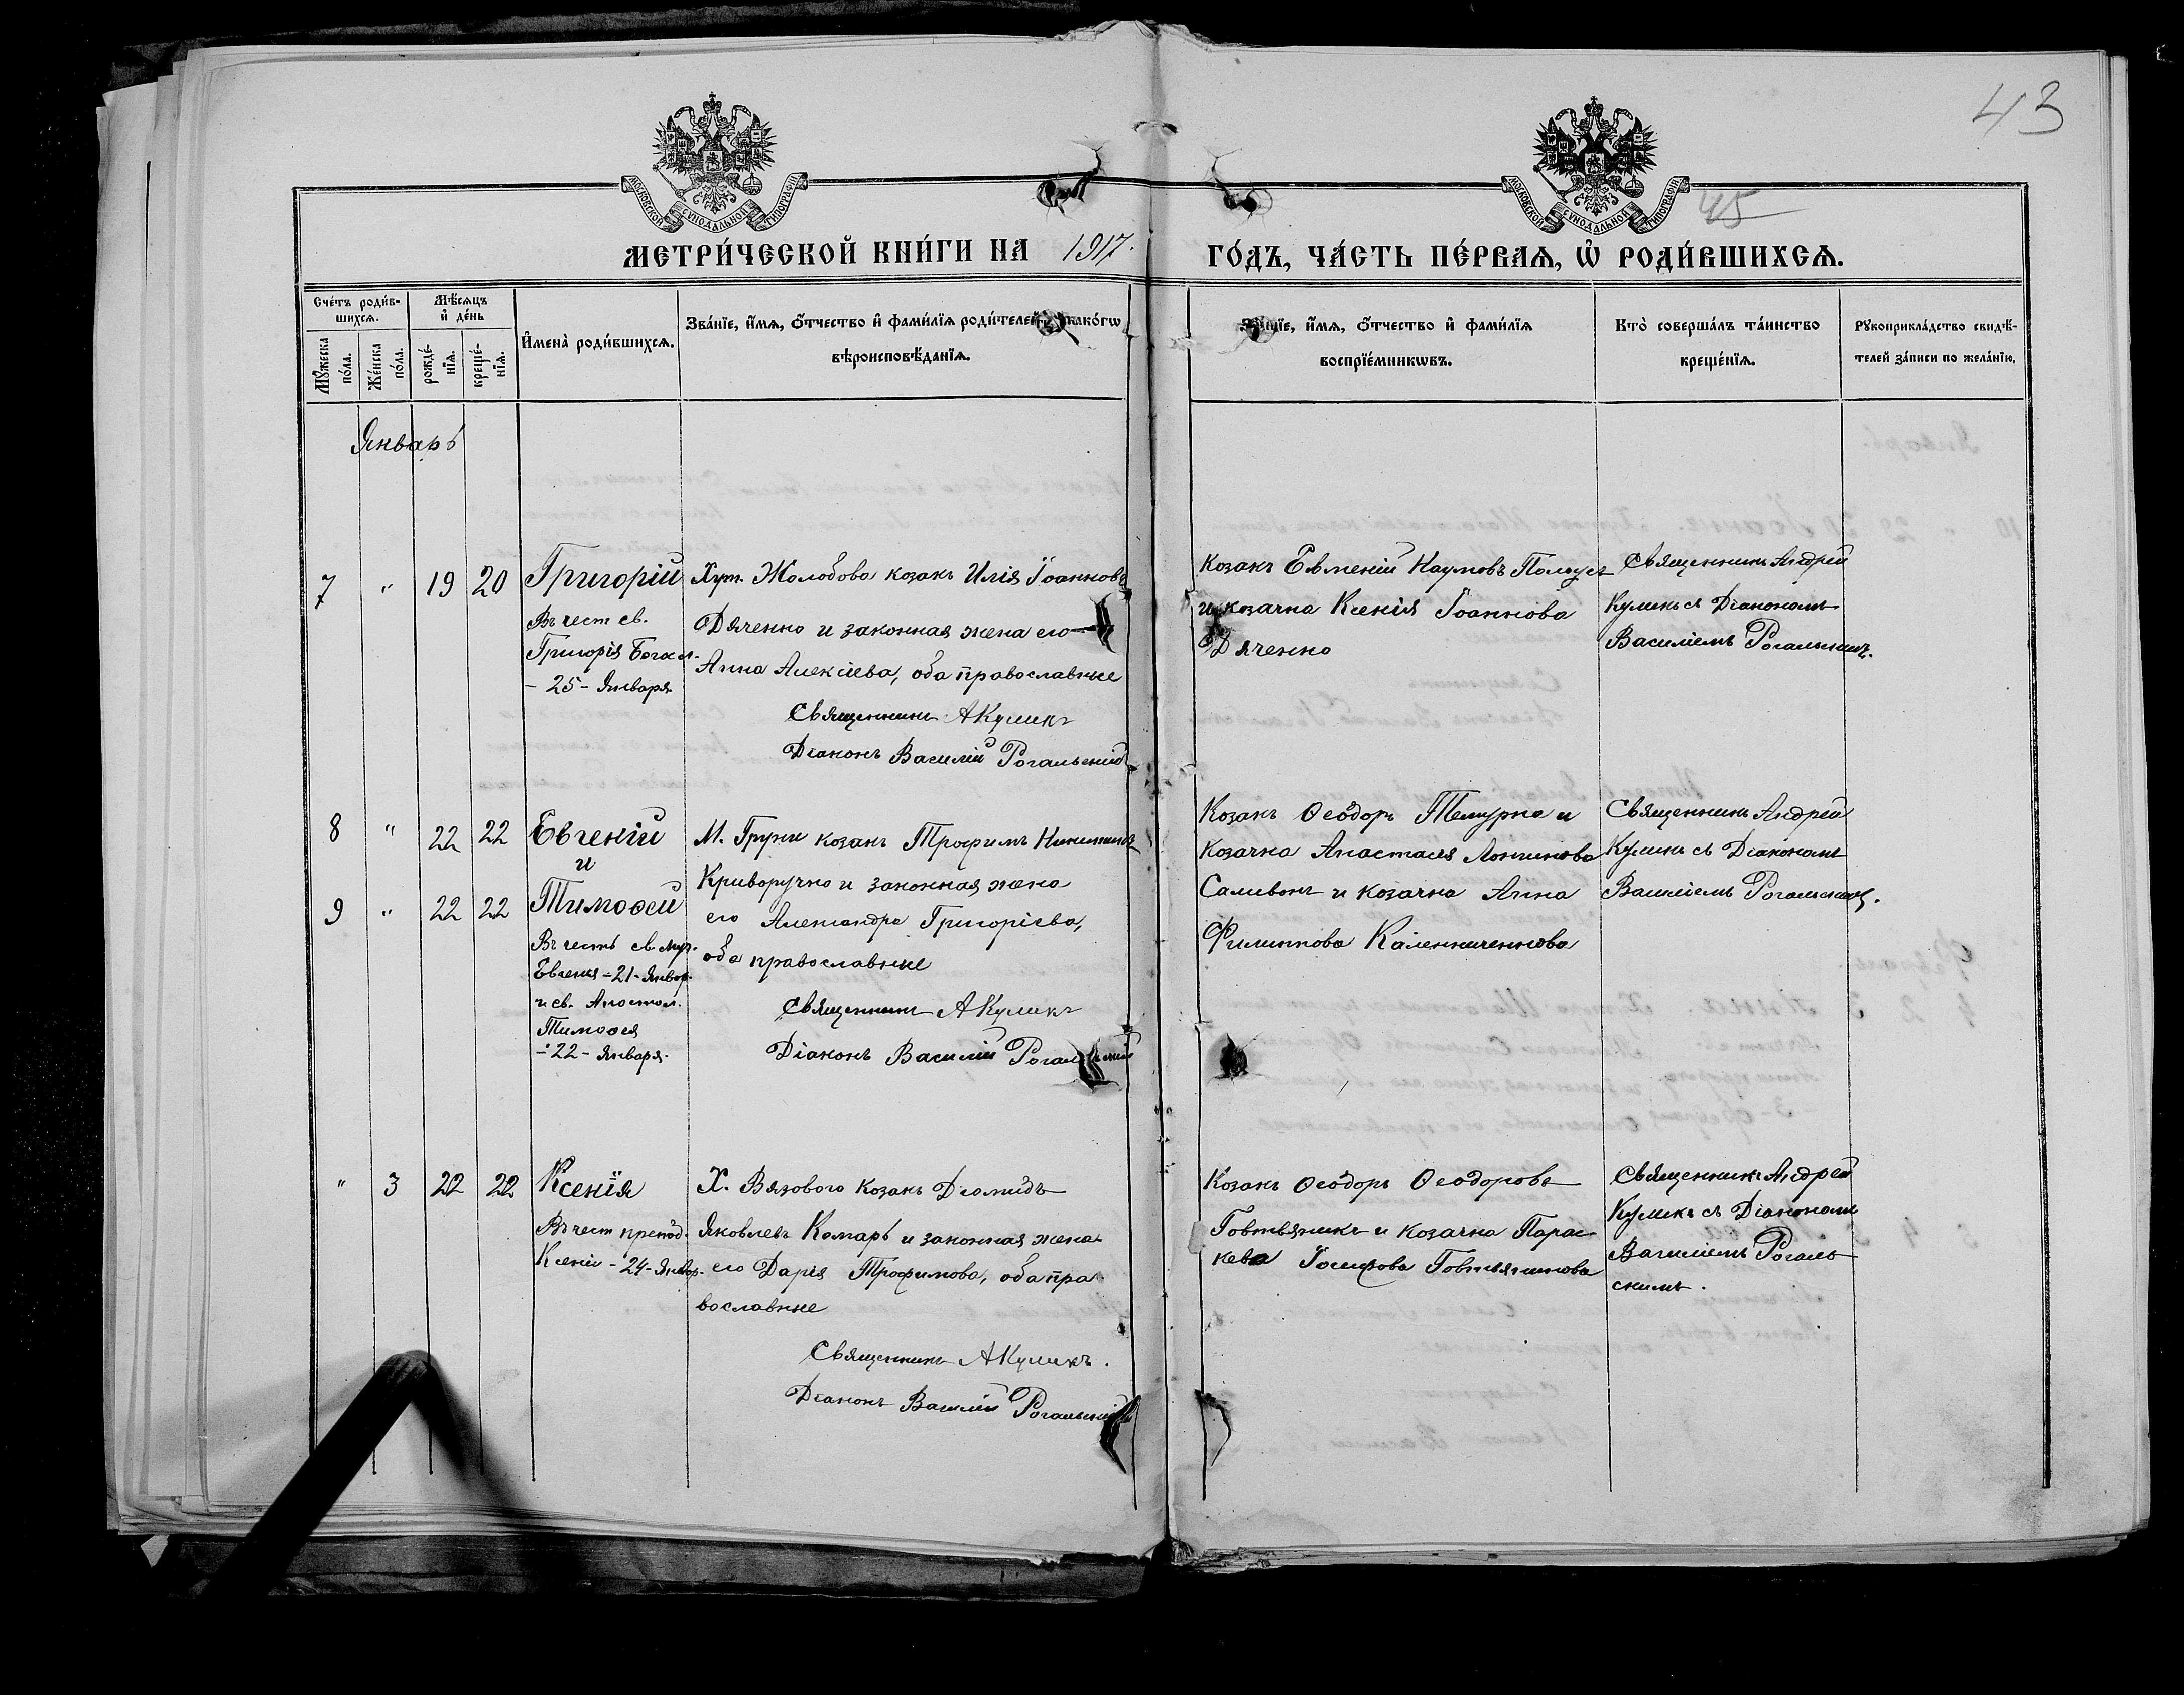 43
МОСКОВСКОЙ СУНОДАЛЬНОЙ ТИПОГРАФІИ
МОСКОВСКОЙ СУНОДАЛЬНОЙ ТИПОГРАФІИ
45
МЕТРИ́ЧЕСКОЙ КНИ́ГИ НА 1917. ГО́ДЪ, ЧА́СТЬ ПЕ́РВАѦ, Ѡ҆ РОДИ́ВШИХСѦ.
Сче́тъ роди́в-
шихсѧ.
Мꙋ́жеска
по́ла.
Же́нска
по́ла.
Мѣ́сѧцъ
и҆ де́нь
рожде́-
нїѧ.
креще́-
нїѧ.
И҆мена̀ роди́вшихсѧ.
Зва́нїе, и҆́мѧ, ѻ҆́тчество и҆ фами́лїѧ роди́телей, како́гѡ
вѣроисповѣ́данїѧ.
Зва́нїе, и҆́мѧ, ѻ҆́тчество и҆ фами́лїѧ
воспрїе́мникѡвъ.
Кто̀ соверша́лъ та́инство
креще́нїѧ.
Рꙋкоприкла́дство свидѣ́-
телей за́писи по жела́нїю.
Январь
7 " 19 20
Григорій
Въ чест св.
Григорія Богосл.
- 25 - Января.
Хут. Жолобова козакъ Илія Іоанновъ
Дяченко и законная жена его
Анна Алексіева, оба православные
Священникъ А Куликъ
Діаконъ Василій Рогальскій
Козакъ Евменій Наумовъ
и козачка Ксенія Іоаннова
Дяченко
Священникъ Андрей
Куликъ съ Діакономъ
Василіемъ Рогальским.
8 " 22 22
Евгеній
и
9 " 22 22
Тимоѳей
Въ честь св. муч.
Евгенія - 21 - Январ.
и св. Апостол.
Тимоѳея
- 22 - Января.
М. Груни козакъ Трофимъ Никитинъ
Криворучко и законная жена
его Александра Григоріева,
оба православные
Священникъ А Куликъ
Діаконъ Василій Рогальскій
Козакъ Ѳеодоръ и
Козачка Анастасія Логинова
Саливонъ и козачка Анна
Филиппова Каленниченкова
Священникъ Андрей
Куликъ съ Діакономъ
Василіемъ Рогальским.
" 3 22 22
Ксенія
Въ чест препод.
Ксеніи - 24 - Январ.
Х. Вязового козакъ Діомидъ
Яковлевъ Комаръ и законная жена
его Дарія Трофимова, оба пра
вославные
Священникъ А Куликъ.
Діаконъ Василій Рогальскій
Козакъ Ѳеодоръ Ѳеодоровъ
Говтвяникъ и козачка Парас-
кева Іосифова Говтвяникова
Священникъ Андрей
Куликъ съ Діакономъ
Василіемъ Рогаль
скимъ.